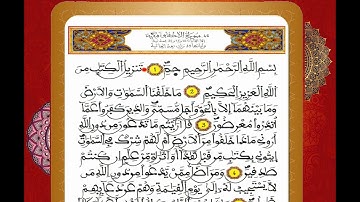 سورة الأحقاف مكية
بسم الله الرحمن الرحيم حم 1 تنزيل الكتب من
الله العزيز الحكيم 2 ما خلقنا السموت والارض
وما بينهما إلا بالحق وأجل مسمى والذين كفروا عما
أنذروا معرضون 3 قل أرايتم ما تدعون من دون الله
أروني ماذا خلقوا من الارض أم لهم شرك في السموت
ايتوني بكتب من قبل هذا أو أثرة من علم إن كنتم
صدقين 4 ومن أضل ممن يدعوا من دون الله من
لا يستجيب له إلى يوم القيمة وهم عن دعائهم